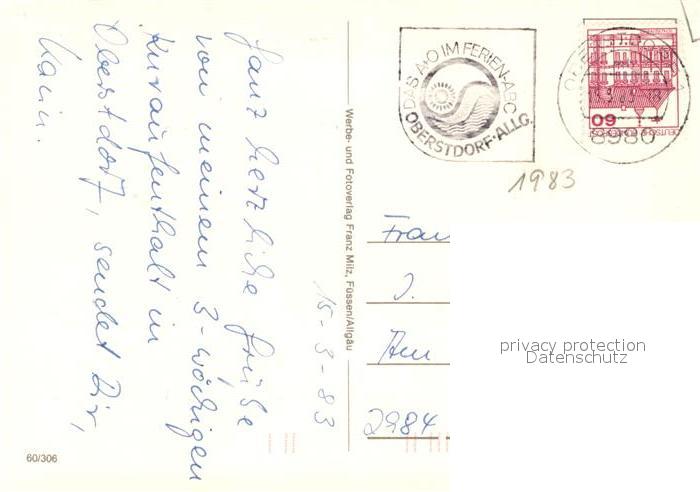 15-3-83
Ganz herzliche Grüße
von meinem 3-wöchigen
Kuraufenthalt in
Oberstdorf, sendet Dir,
Karin.
60/306
Werbe- und Fotoverlag Franz Milz, Füssen/Allgäu
DAS A+O IM FERIEN-ABC
OBERSTDORF·ALLG.
60
8980
1983
Frau
J.
Am
2984
privacy protection
Datenschutz